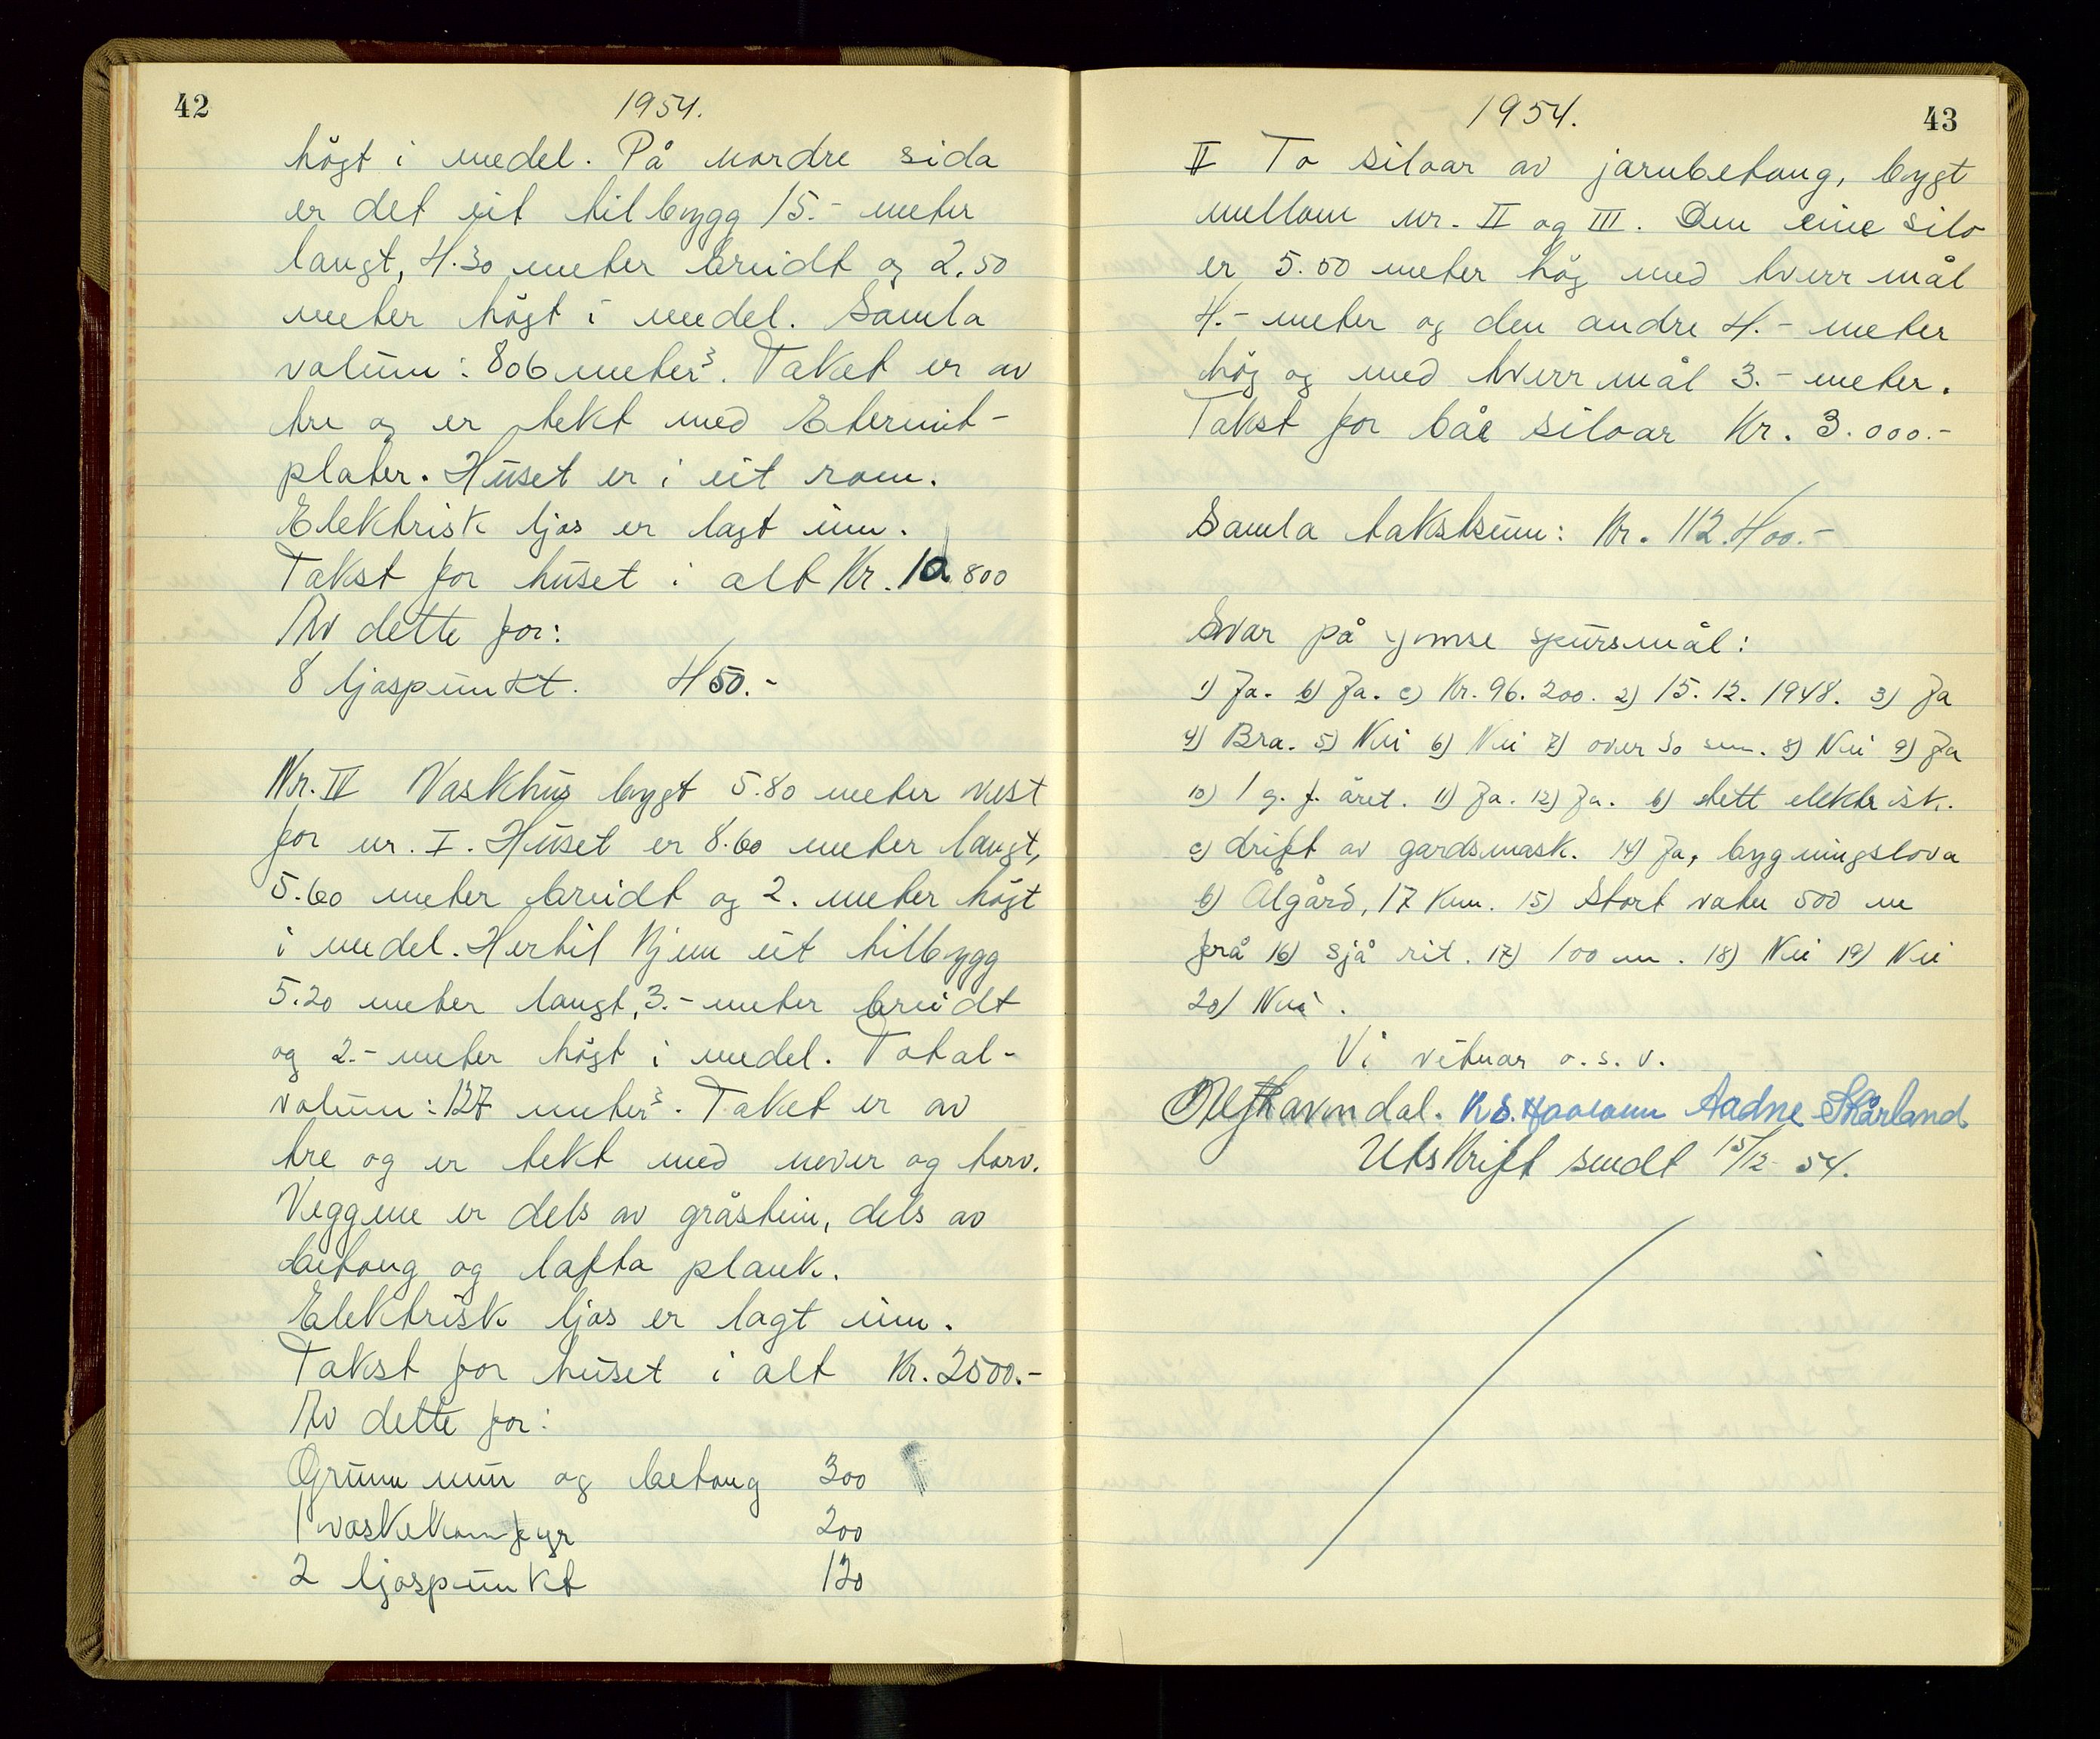 42
1954.
högt i medel. På nordre sida
er det eit tilbygg 15.- meter
langt, 4.30 meter breidt og 2.50
meter högt i medel. Samla
volum: 806 meter³. Taket er av
tre og er tekt med Eternit-
plater. Huset er i eit rom.
Elektrisk ljos er lagt inn.
Takst for huset i alt Kr. 10.800
Av dette for:
8 ljospunkt. 450.-
Nr. IV Vaskhus bygt 5.80 meter vest
for nr. I. Huset er 8.60 meter langt,
5.60 meter breidt og 2. meter högt
i medel. Hertil kjem eit tilbygg
5.20 meter langt, 3.- meter breidt
og 2.- meter högt i medel. Total-
volum: 127 meter³. Taket er av
tre og er tekt med never og torv.
Veggene er dels av gråstein, dels av
betong og lafta plank.
Elektrisk ljos er lagt inn.
Takst for huset i alt Kr. 2500.-
Av dette for:
Grunnmur og betong 300
1 vaskekomfyr 200
2 ljospunkt 120
1954.
43
V To siloar av jarnbetong, bygt
mellom nr. II og III. Den eine silo
er 5.00 meter hög med tverrmål
4.- meter og den andre 4.- meter
hög og med tverrmål 3.- meter.
Takst for båe siloar Kr. 3.000.-
Samla takstsum: Kr. 112.400.-
Svar på ymse spursmål:
1) Ja. b) Ja. c) Kr. 96.200. 2) 15.12.1948. 3) Ja
4) Bra. 5) Nei 6) Nei 7) over 30 sm. 8) Nei 9) Ja
10) 1 g. f. året. 11) Ja. 12) Ja. b) lett elektrisk.
c) drift av gardsmask. 14) Ja, bygningslova
b) Ålgård, 17 km. 15) Stort vatn 500 m
frå 16) sjå rit. 17) 100 m. 18) Nei 19) Nei
20) Nei.
Vi vitnar o.s.v.
Aadne Skårland
Utskrift sendt 15/12-54.